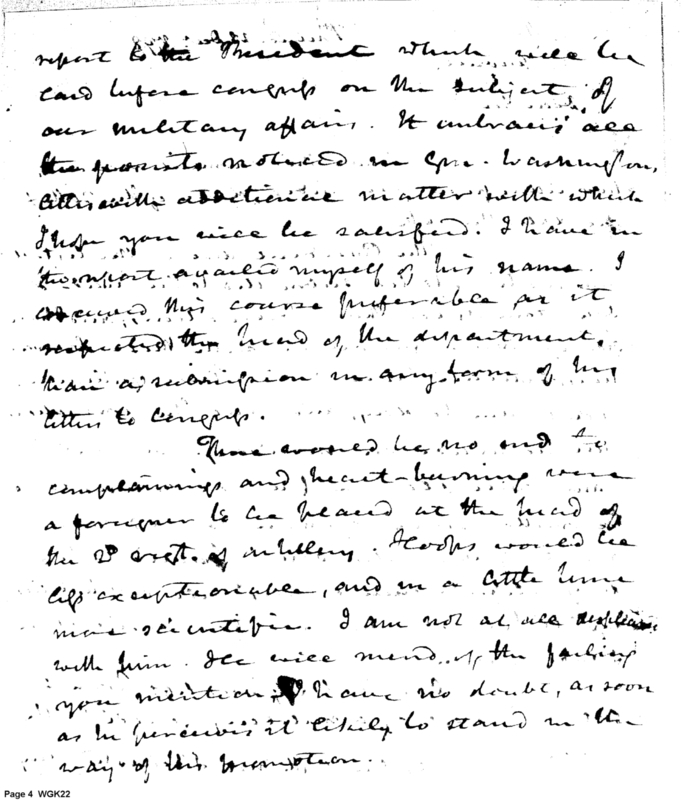 report to the President which will be
laid before congress on the subject of
our military affairs. It embraces all
the points noticed in Gen. Washingtons
letters with additional matter with which
I hope you will be satisfied. I have in
the report availed myself of his name. I
deemed this course preferable as it
respected the head of the department,
than a submission in any form of his
letters to congress.
There would be no end to
complainings and heart-burning were
a foreigner to be placed at the head of
the 2d regt. of artillery. Hoops would be
less exceptionable, and in a little time
more scientific. I am not at all displeased
with him. He will mend of the failing
you mention I have no doubt, as soon
as he perceives it likely to stand in the
way of his promotion.
Page 4 WGK22